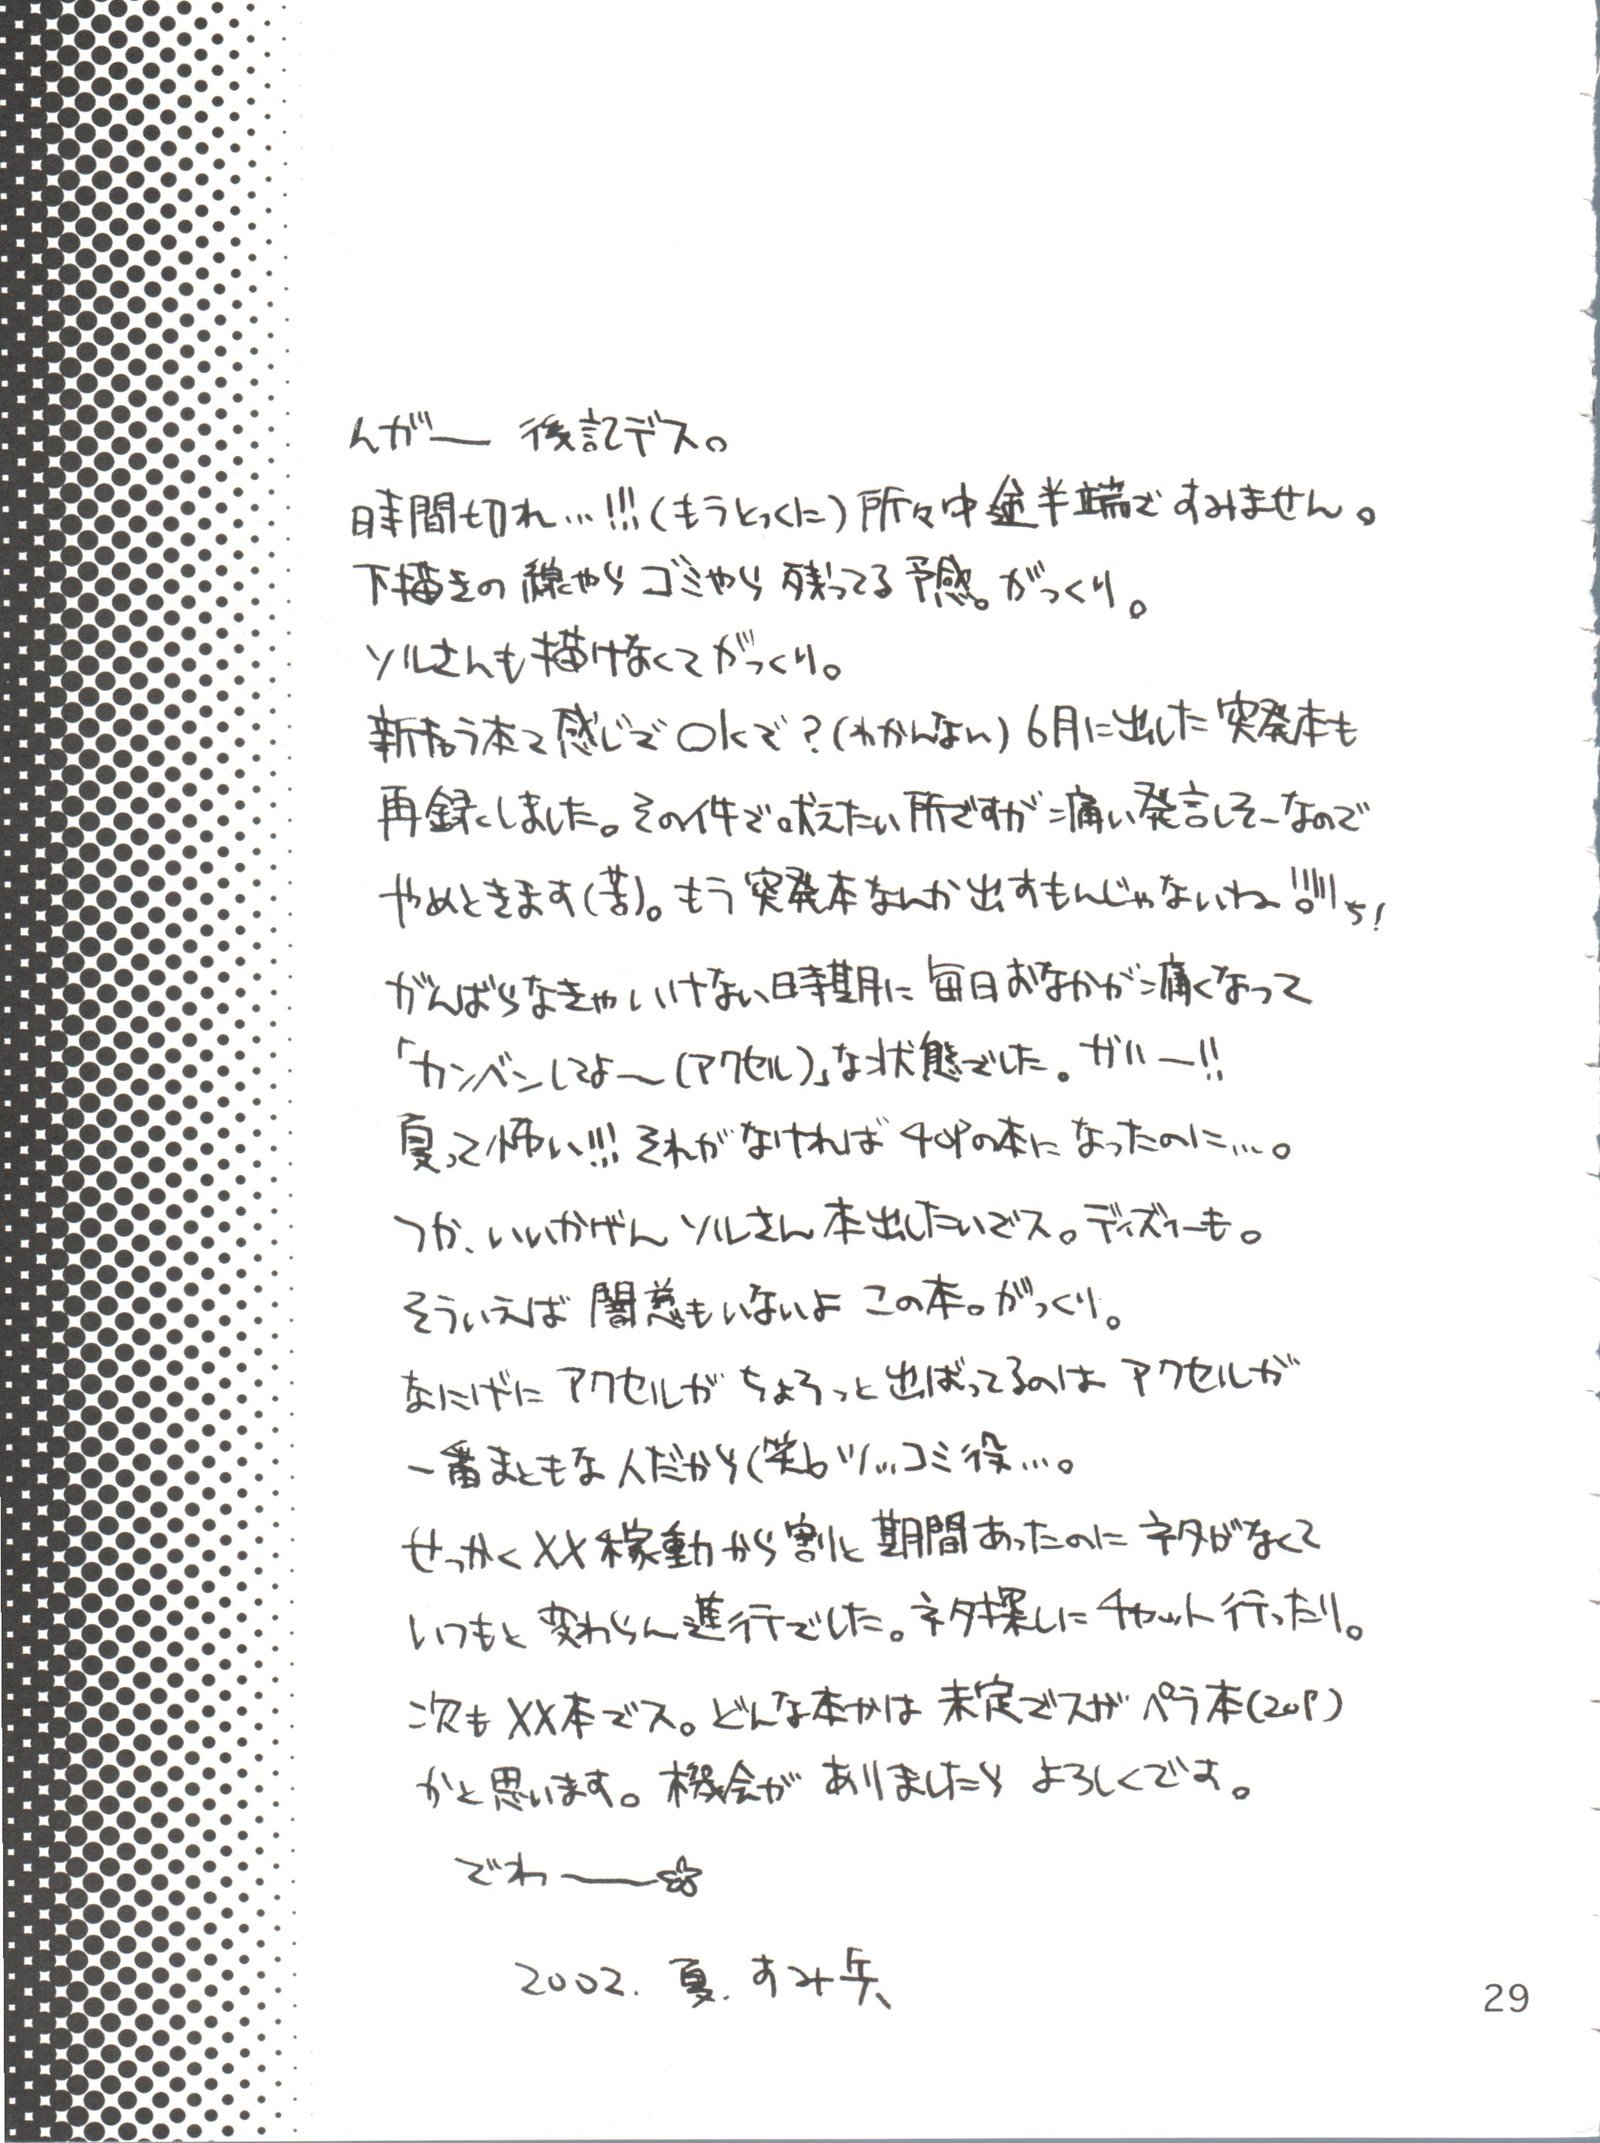 んがー 後記デス。
時間切れ…!!!(もうとっくに)所々中途半端ですみません。
下描きの線やらゴミやら残ってる予感。がっくり。
ソルさんも描けなくてがっくり。
新おう本て感じでOKで?(わかんない)6月に出した突発本も
再録しました。その件で吠えたい所ですが痛い発言しそーなので
やめときます(苦)。もう突発本なんか出すもんじゃないねー!!!!ち!
がんばらなきゃいけない時期に毎日おなかが痛くなって
「カンベンしてよ〜(アクセル)」な状態でした。ガハー!!
夏って怖い!!!それがなければ40Pの本になったのに…。
つか、いいかげんソルさん本出したいでス。ディズィーも。
そういえば闇慈もいないよこの本。がっくり。
なにげにアクセルがちょろっと出ばってるのはアクセルが
一番まともな人だから(笑)。ツッコミ役…。
せっかくXX稼動から割と期間あったのにネタがなくて
いつもと変わらん進行でした。ネタ探しにチャット行ったり。
次もXX本でス。どんな本かは未定でスがペラ本(20P)
かと思います。機会がありましたらよろしくです。
でわー
2002.夏.すみ兵
29